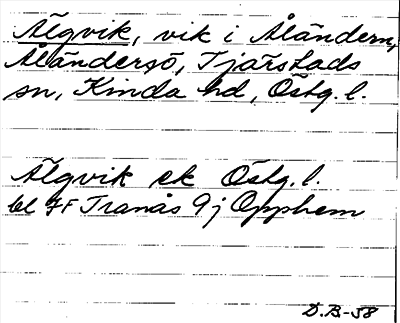 Älgvik, vik i Åländern,
Åländersö, Tjärstads
sn, Kinda hd, Östg. l.
Älgvik ek Östg. l.
bl 7F Tranås 9j Opphem
D.B-58